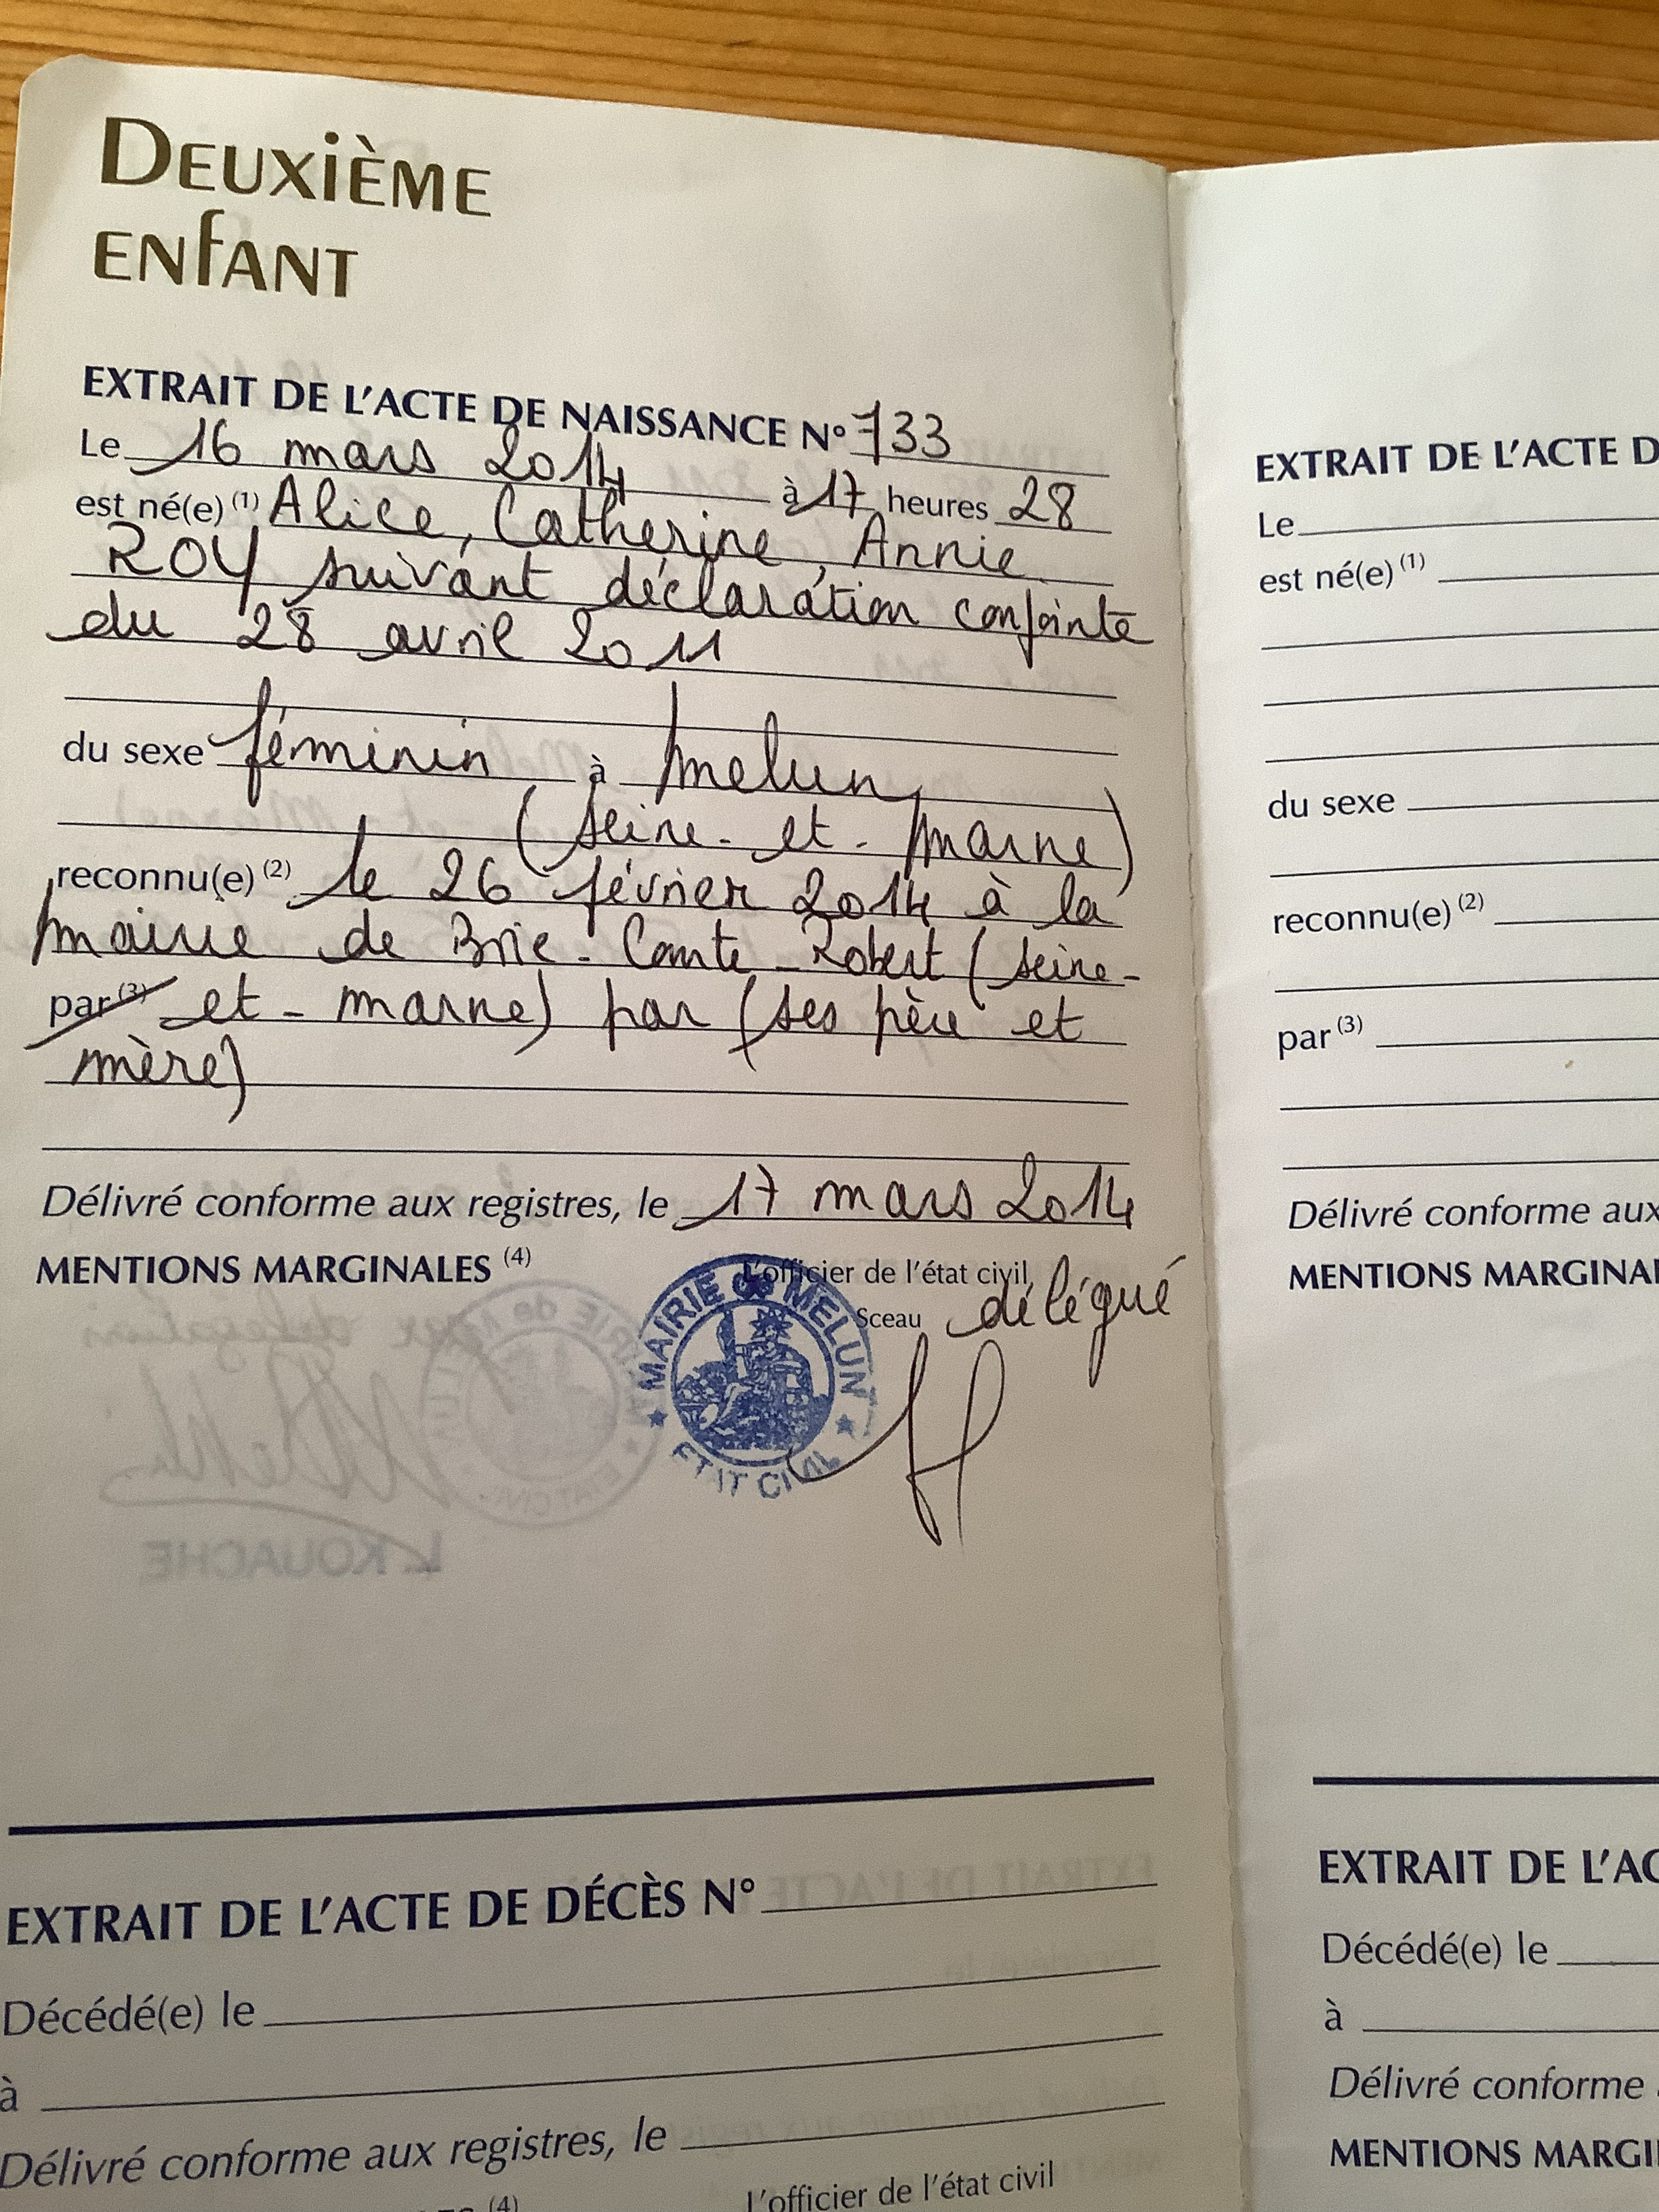 DEUXIÈME
ENFANT
EXTRAIT DE L'ACTE DE NAISSANCE N° 733
Le 16 mars 2014 à 17 heures 28
est né(e) (1) Alice, Catherine, Annie
ROY suivant déclaration conjointe
du 28 avril 2011
du sexe féminin à Melun
(Seine-et-Marne)
reconnu(e) (2) le 26 février 2014 à la
mairie de Brie-Comte-Robert (Seine-
par (3) et-marne) par (ses père et
mère)
Délivré conforme aux registres, le 17 mars 2014
MENTIONS MARGINALES (4)
L'officier de l'état civil,
Sceau délégué
MAIRIE de MELUN
ETAT CIVIL
L. KOUACHE
EXTRAIT DE L'ACTE DE DÉCÈS N°
Décédé(e) le
à
Délivré conforme aux registres, le
(4)
L'officier de l'état civil
EXTRAIT DE L'ACTE D
Le
est né(e) (1)
du sexe
reconnu(e) (2)
par (3)
Délivré conforme aux
MENTIONS MARGINA
EXTRAIT DE L'AC
Décédé(e) le
à
Délivré conforme
MENTIONS MARGI